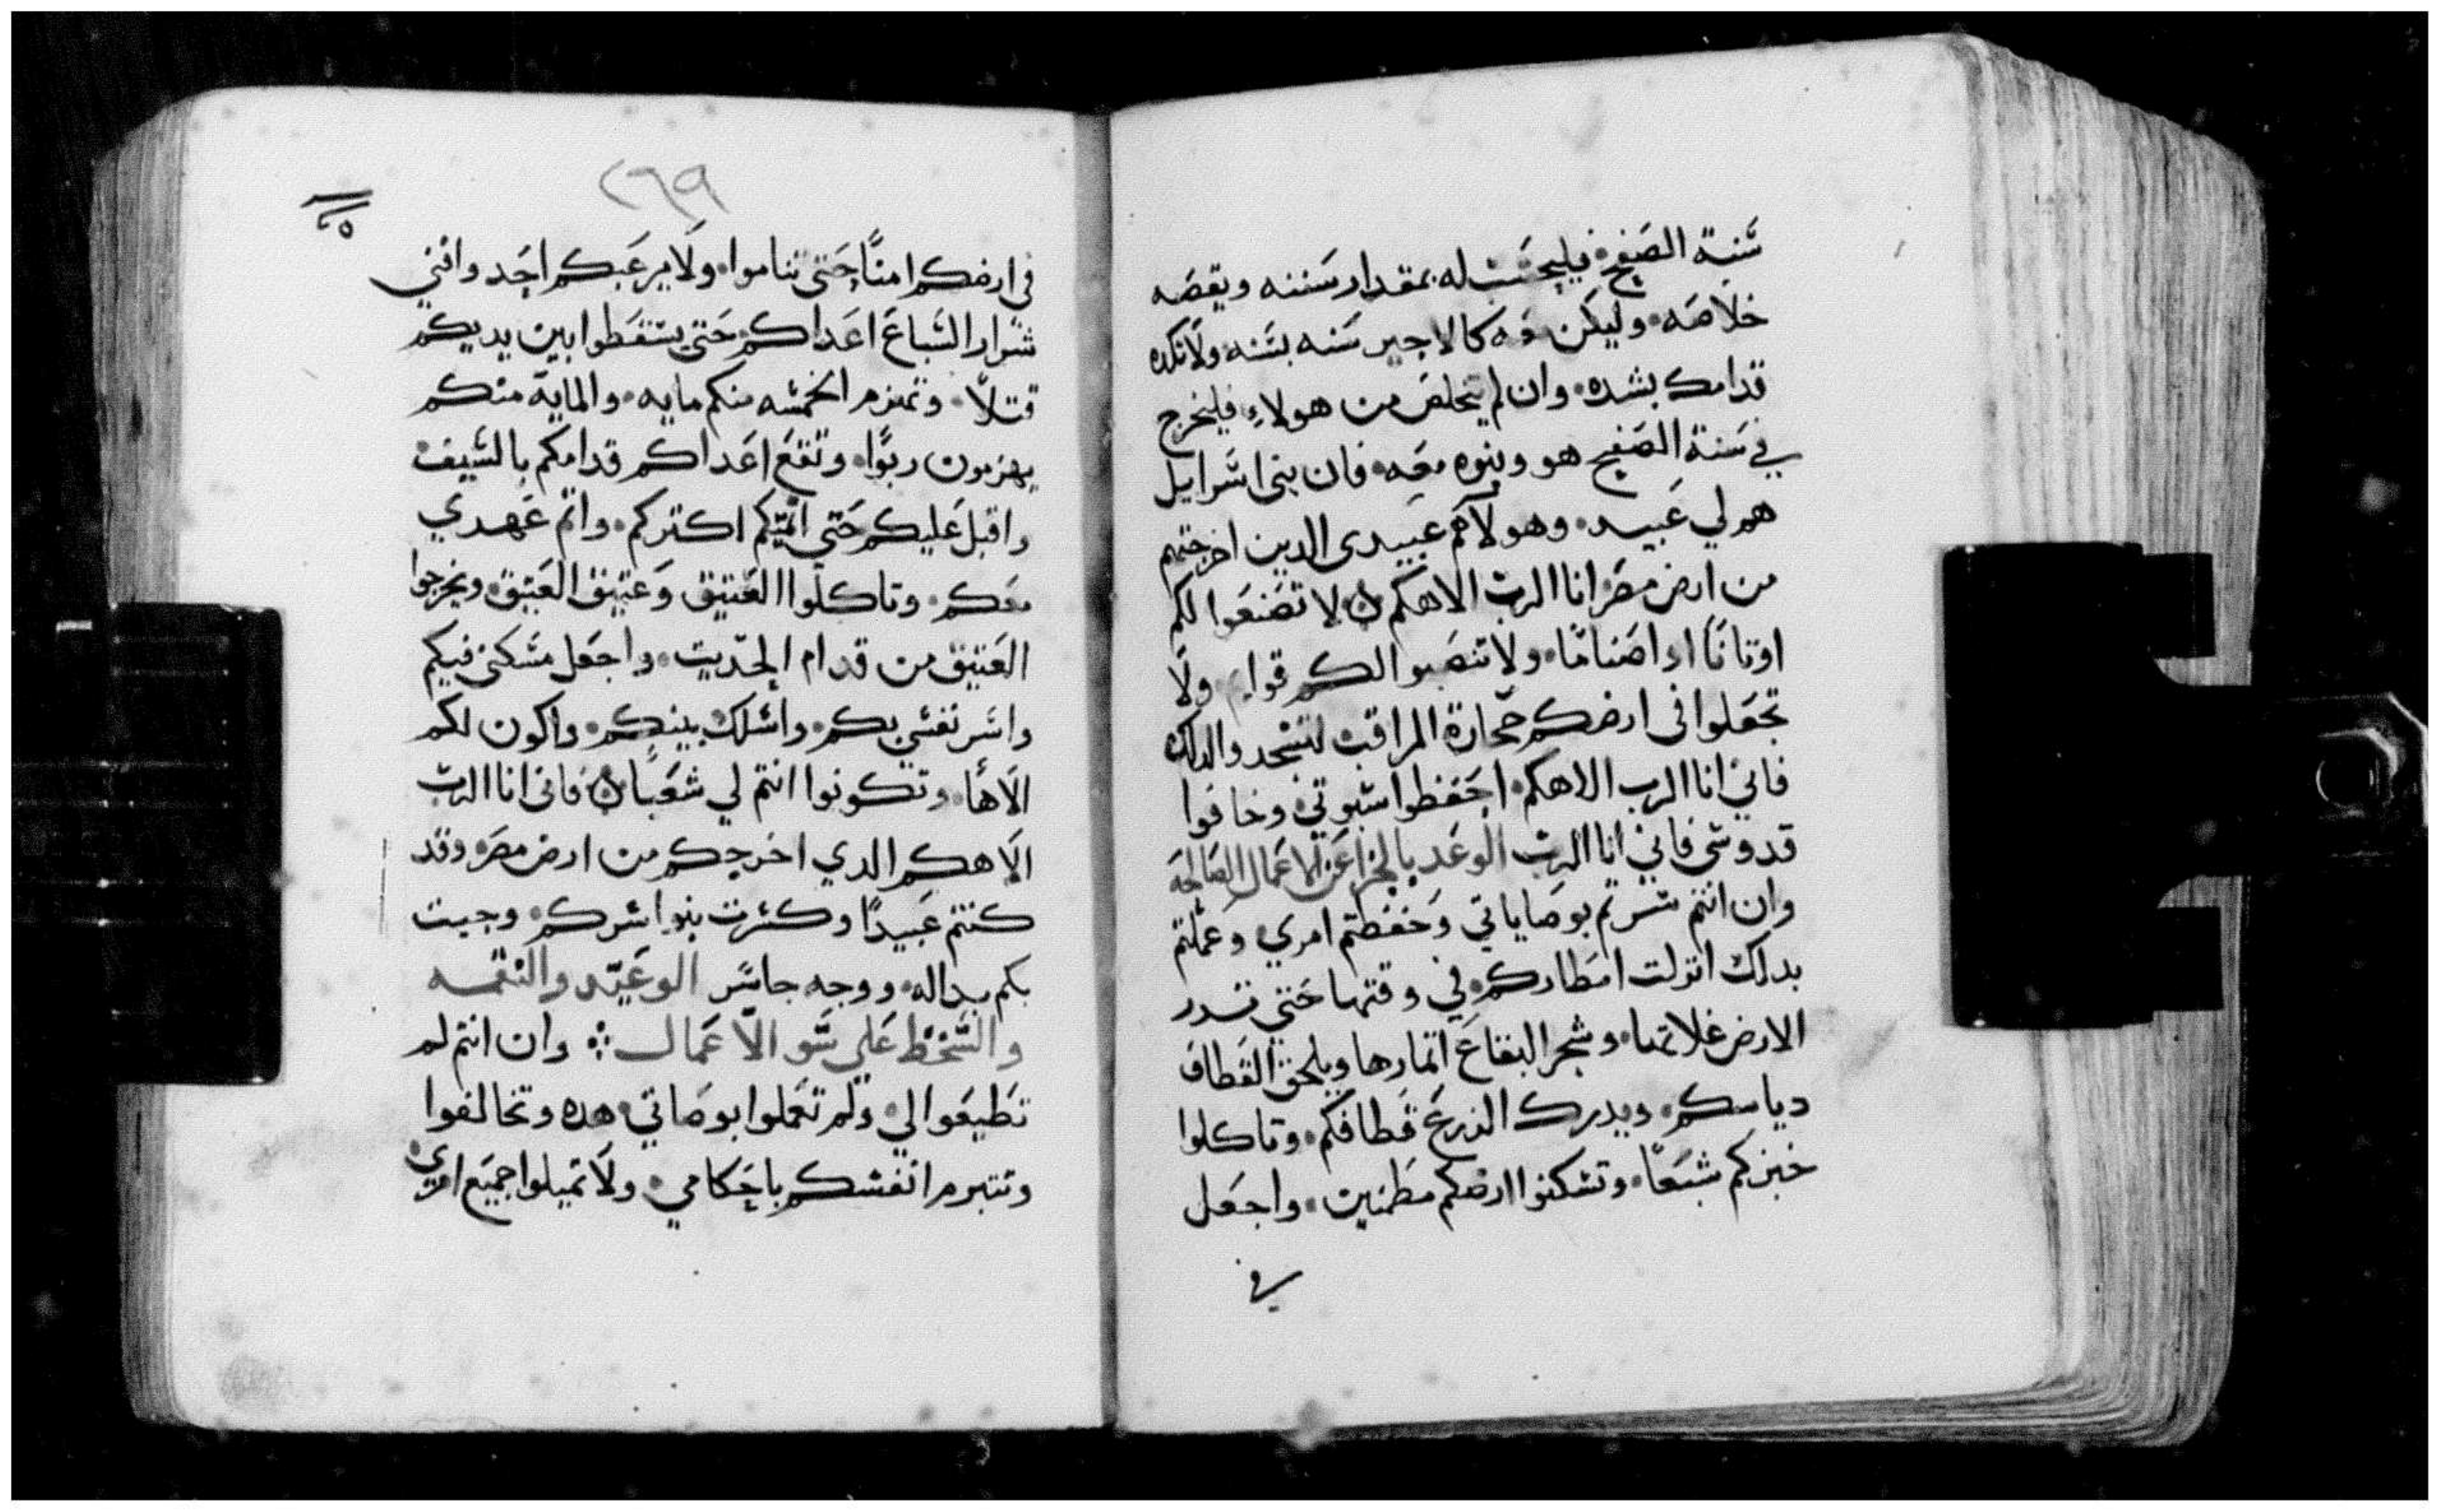 سنة الصفح فليحسب له بمقدار سننه ويقصه
خلاصه وليكن معه كالاجير سنه بسنه ولا تكده
قدامك بشده وان لم يتخلص من هولاء فليخرج
في سنة الصفح هو وبنوه معه فان بني اسرايل
هم لي عبيد وهولاء هم عبيدي الدين اخرجتهم
من ارض مصر انا الرب الاهكم لا تصنعوا لكم
اوتانًا او اصنامًا ولا تنصبوا لكم قوايم ولا
تجعلوا في ارضكم حجارة المراقب لتسجدوا لدلك
فاني انا الرب الاهكم احفظوا سبوتي وخافوا
قدوسي فاني انا الرب الوعد بالجزا عن الاعمال الصالحة
وان انتم سرتم بوصاياتي وحفظتم امري وعملتم
بدلك انزلت امطاركم في وقتها حتي تدر
الارض غلاتها وشجر البقاع اتمارها ويلحق القطاف
دياسكم ويدرك الزرع قطافكم وتاكلوا
خبزكم شبعًا وتسكنوا ارضكم مطمنين واجعل
في
٢٦٩
في ارضكم امنًا حتي تناموا ولا يرعبكم احد وافني
شرار السباع اعداكم حتي يسقطوا بين يديكم
قتلًا وتهزم الخمسه منكم مايه والماية منكم
يهزمون ربوًا وتقع اعداكم قدامكم بالسيف
واقبل عليكم حتي انميكم اكتركم واتم عهدي
معكم وتاكلوا العتيق وعتيق العتيق وتخرجوا
العتيق من قدام الحديت واجعل مسكني فيكم
واسر نفسي بكم واسلك بينكم واكون لكم
الاهًا وتكونوا انتم لي شعبًا فاني انا الرب
الاهكم الدي اخرجكم من ارض مصر وقد
كنتم عبيدًا وكثرت بنوا اسركم وجيت
بكم بداله ووجه جاسر الوعيد والنقمه
والسخط علي سو الاعمال وان انتم لم
تطيعوا لي ولم تعملوا بوصاتي هده وتخالفوا
وتتبرم انفسكم باحكامي ولا تميلوا جميع امري